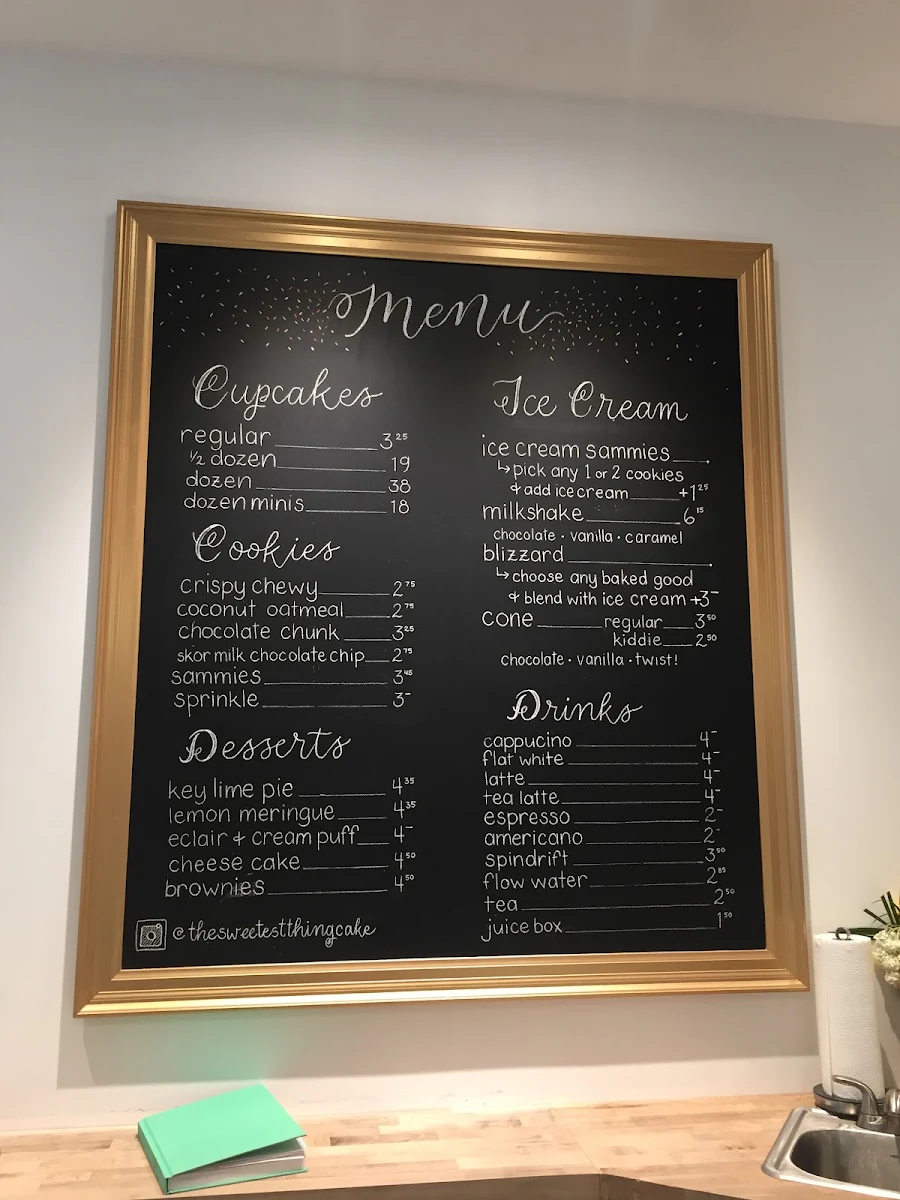 Menu
Cupcakes
regular 3²⁵
½ dozen 19
dozen 38
dozen minis 18
Cookies
crispy chewy 2⁷⁵
coconut oatmeal 2⁷⁵
chocolate chunk 3²⁵
skor milk chocolate chip 2⁷⁵
sammies 3⁴⁵
sprinkle 3⁻
Desserts
key lime pie 4³⁵
lemon meringue 4³⁵
eclair & cream puff 4⁻
cheese cake 4⁵⁰
brownies 4⁵⁰
@thesweetestthingcake
Ice Cream
ice cream sammies
↳ pick any 1 or 2 cookies
& add ice cream +1²⁵
milkshake 6¹⁵
chocolate · vanilla · caramel
blizzard
↳ choose any baked good
& blend with ice cream +3⁻
cone regular 3⁵⁰
kiddie 2⁵⁰
chocolate · vanilla · twist!
Drinks
cappucino 4⁻
flat white 4⁻
latte 4⁻
tea latte 4⁻
espresso 2⁻
americano 2⁻
spindrift 3⁵⁰
flow water 2⁸⁵
tea 2⁵⁰
juice box 1⁵⁰